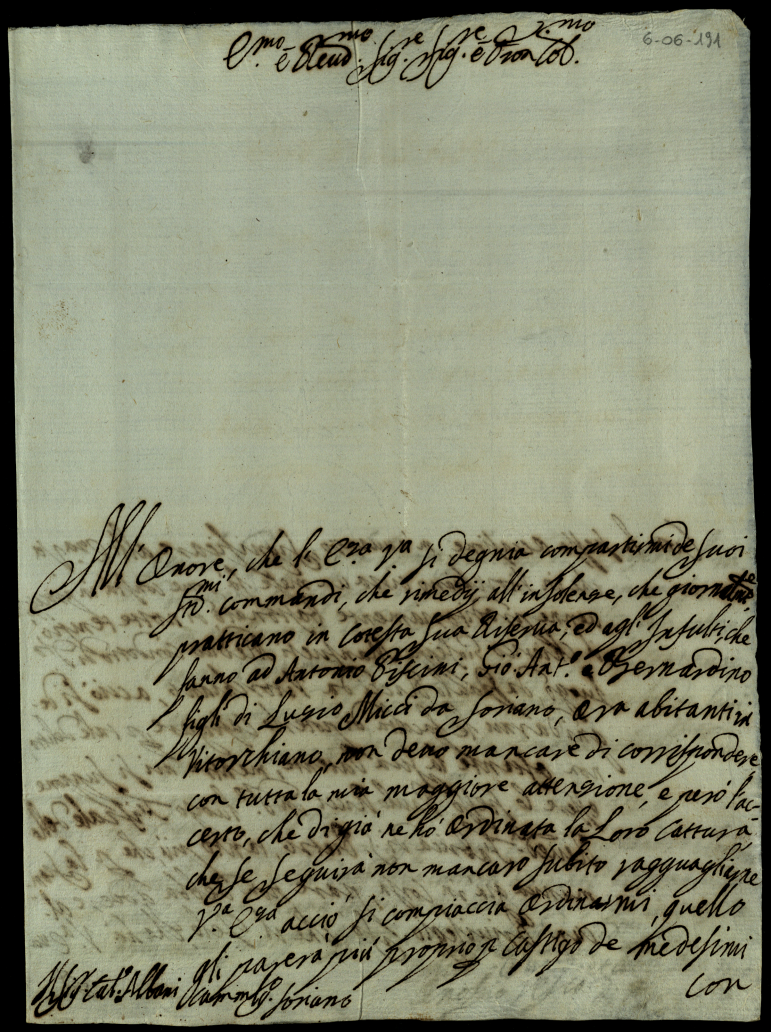 6-06-191
E.mo e Reud.mo Sig.re Sig.re e Pron Col.mo
All'Onore, che l'E.za V.a si degnia compartirmi de suoi
st.mi commandi, che rimedij all'insolenze, che giornalm.te
pratticano in cotesta sua Riserva, ed agl'Insulti, che
fanno ad Antonio Piscini, Giõ: Ant.o e Bernardino
figli di Luzio Micci da Soriano, Ora abitanti in
Vitorchiano, non devo mancare di corrispondere
con tutta la mia maggiore attenzione, e però l'ac-
certo, che di già ne hò Ordinata la Loro Cattura,
che se seguirà non mancarò subito ragguagliarne
V.a E.za acciò si compiaccia Ordinarmi, quello
gli parerà più proprio p Castigo de medesimi
con
Sig. Car.le Albani
Soriano